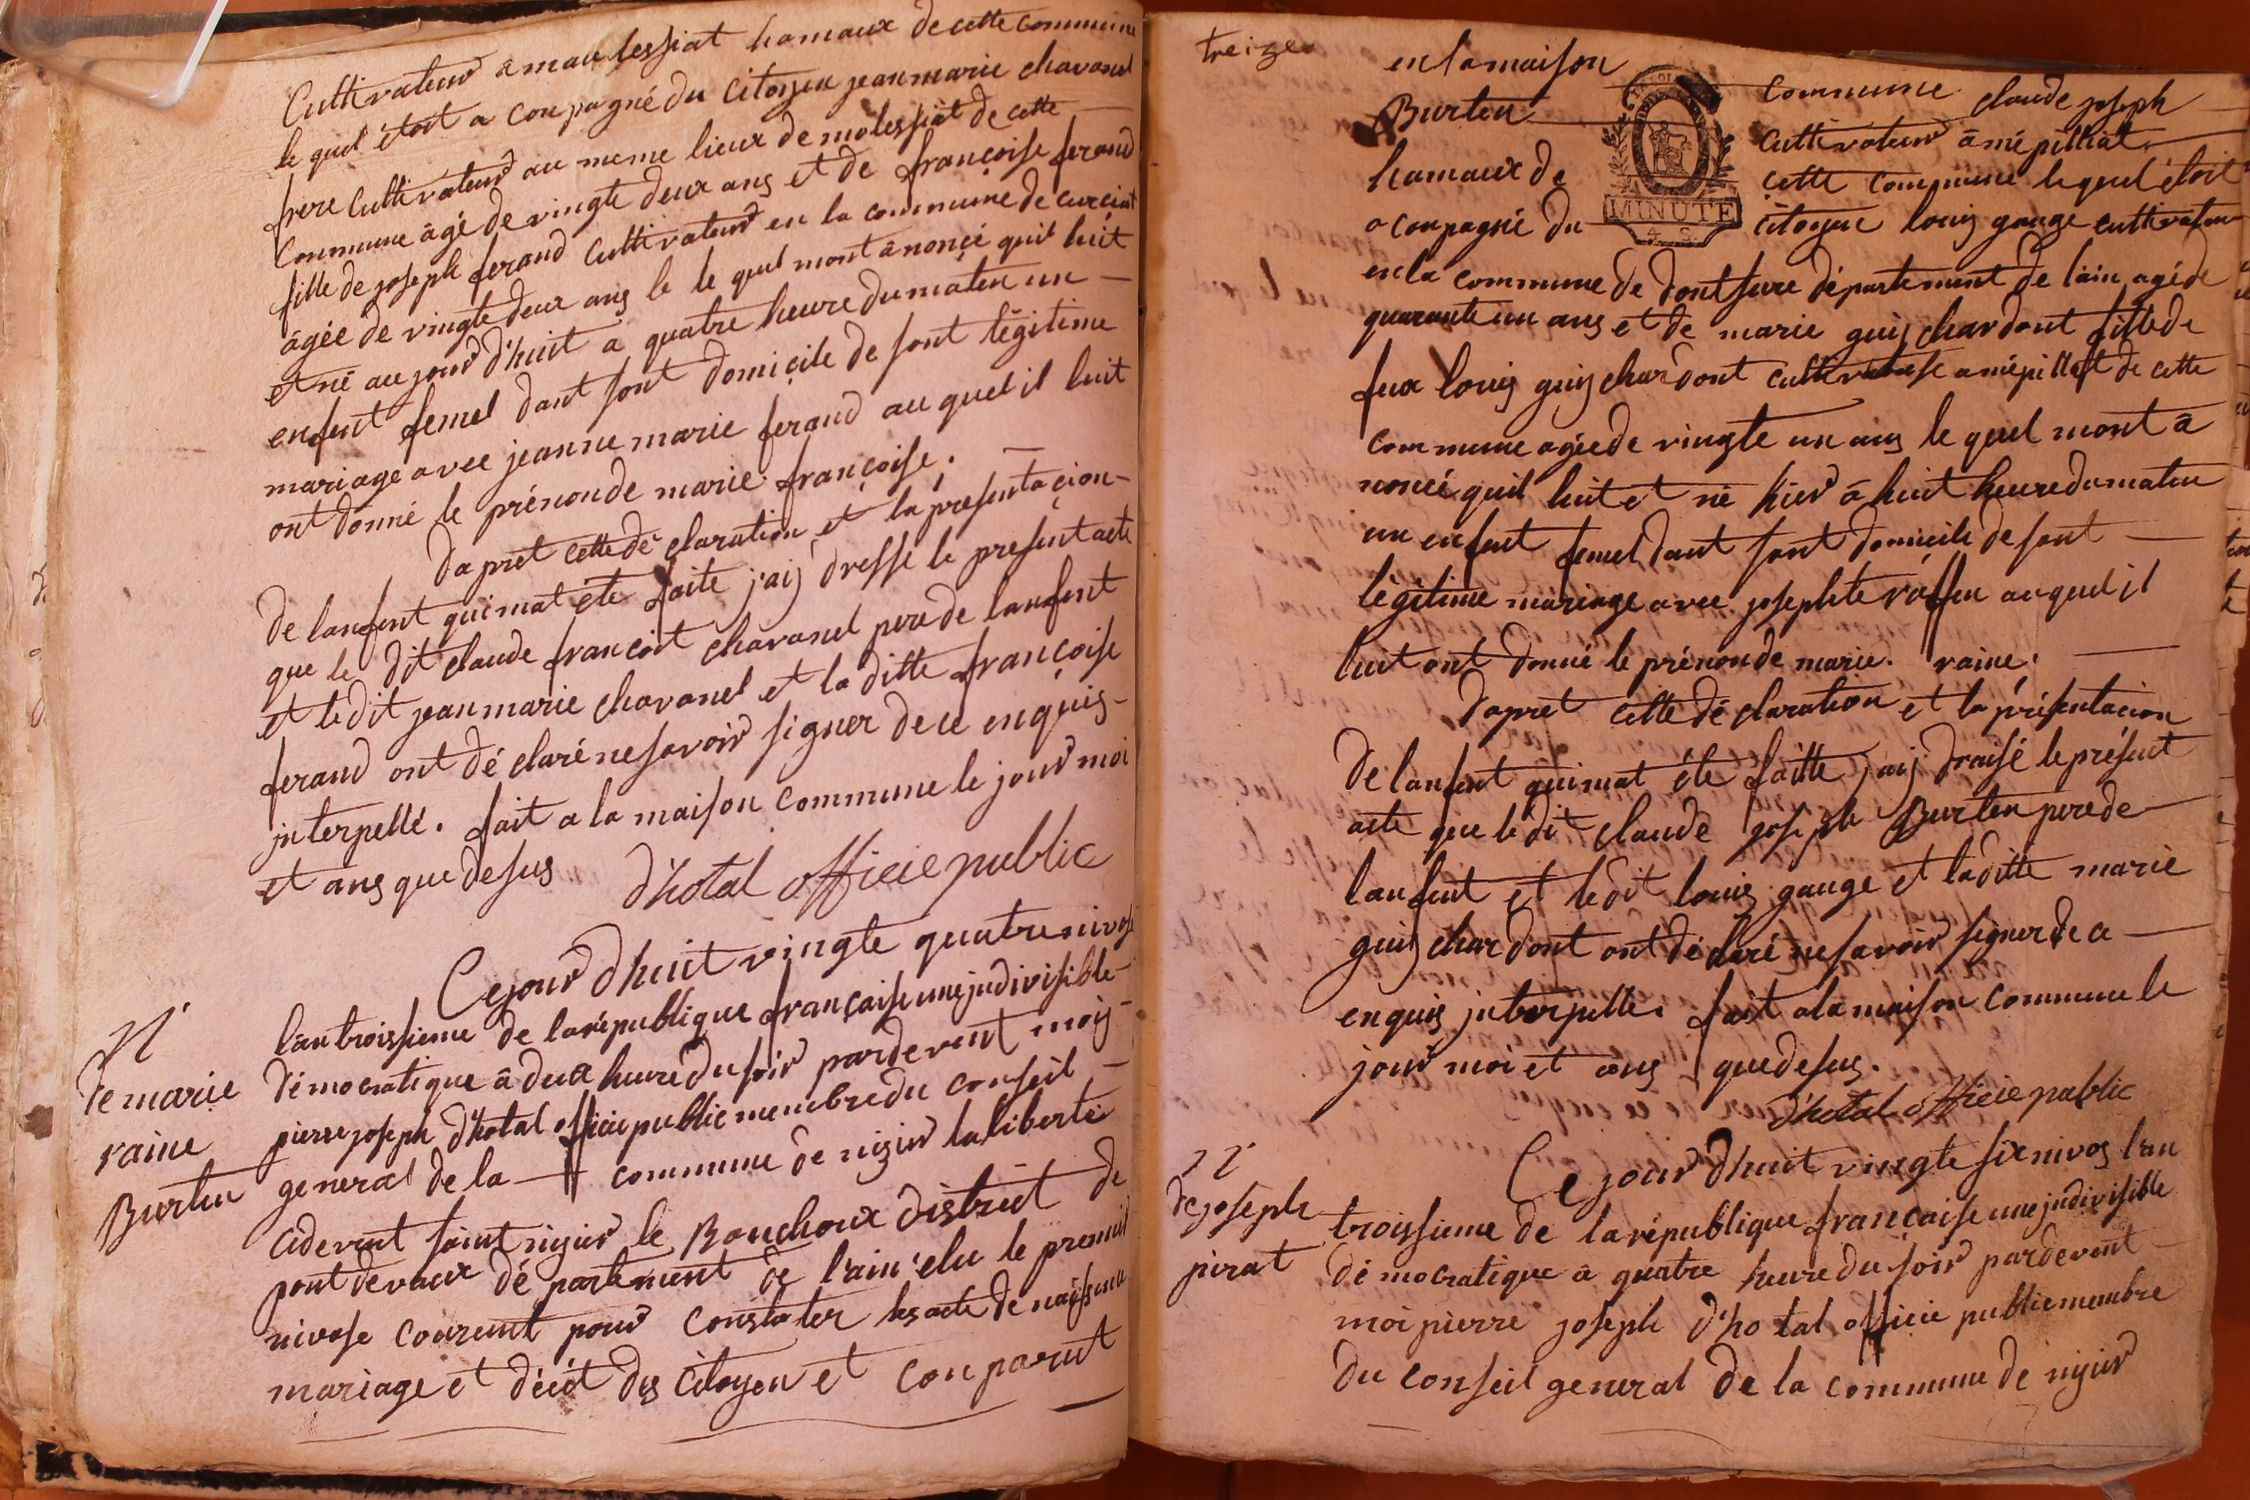 Cultivateur a mau lessiat hamaux de cette commune
le quel étoit a conpagné du citoyen jean marie chavanel
frere Cultivateur au meme lieux de molessiat de cette
Commune âgé de vingte deux ans et de françoise ferand
fille de joseph ferand Cultivateur en la commune de curciat
âgée de vingte deux ans le le quel mont ânonçé quil luit
et né au jour d'huit a quatre heure du maten un
enfent femel dant sont domiçile de sont légitime
mariage avec jeanne marie ferand au quel il luit
ont donné le prénon de marie. françoise.
Dapret cette dé claration et la présentaçion
De lanfent qui mat été faite j'aij dressé le present acte
que le dit claude françoit chavanel pere de lanfent
et le dit jean marie chavanel et la ditte françoise
ferand ont dé claré ne savoir signer de ce enquis
jnterpellé. fait a la maison commune le jour moi
et ans que desus d'hotal officie public
N
de marie
raine
Burtin
Ce jour d'huit vingte quatre nivos
lan troissieme de la république française une jndivisible
démocratique â deux heure du soir pardevent moij
pierre joseph d'hotal officie public membre du conseil
general de la commune de nizier la liberté
cidevent saint nizier le Bouchoux district de
pont devaux dé partement de l'ain elu le premié
nivose courent pour constater les acte de naissence
mariage et décét des citoyen et conparut
treize
en la maison commune claude joseph
Burten Cultivateur â mépilliat
hamaux de cette commune le quel étoit
a conpagné du citoyen louis gauge cultivateur
MINUTE
en la commune de dontsure département de lain agé de
quarante un ans et de marie guij chardont fille de
feux louis guij chardont cultivateuse a mépilliat de cette
commune agée de vingte un ans le quel mont â
noncé quil luit et né hier â huit heure du maten
un enfent femel dant sont domicile de sont
légitime mariage avec josephte raffin au quel il
luit ont donné le prénon de marie. raine.
Dapret cette dé claration et la présentacion
De lanfent qui mat été faitte jaij draisé le présent
acte que le dit claude joseph Burten pere de
lanfent et le dit louis gauge et la ditte marie
guij chardont ont dé claré ne savoir signer de ce
enquis jnterpellé. fait a la maison commune le
jour moi et ans que desus.
d'hotal officie public
N
de joseph
pirat
Ce jour d'huit vingte six nivos lan
troissieme de la république française une jndivisible
démocratique â quatre heure du soir pardevent
moi pierre joseph d'hotal officie public membre
du conseil general de la commune de nizier